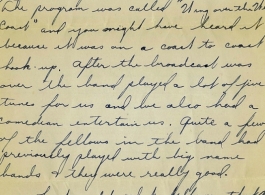 The program was called "Wing over the West
Coast" and you might have heard it
because it was on a coast to coast
hook-up. After the broadcast was
over the band played a lot of fine
tunes for us and we also had a
comedian entertain us. Quite a few
of the fellows in the band had
previously played with big name
bands & they were really good.